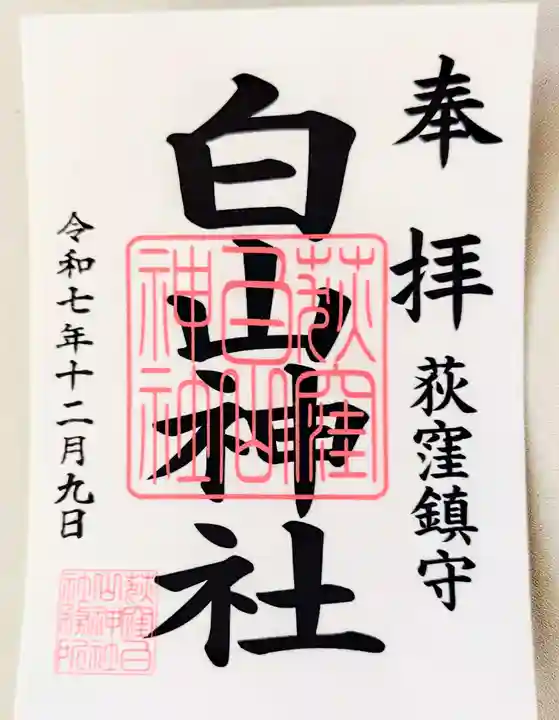 奉拝
荻窪鎮守
白山神社
荻窪
白山
神社
令和七年十二月九日
荻窪白
山神社
社務所